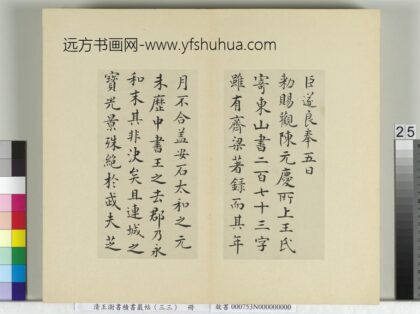 远方书画网-www.yfshuhua.com
臣遂良奉五日
勑賜觀陳元慶所上王氏
寄東山書二百七十三字
雖有齊梁著錄而其年
月不合蓋安石太和之元
未歷中書王之去郡乃永
和末其非決矣且連城之
寶光景殊絕於武夫芝
25
清王澍書積書巖帖（三三）　冊　故書 000753N000000000